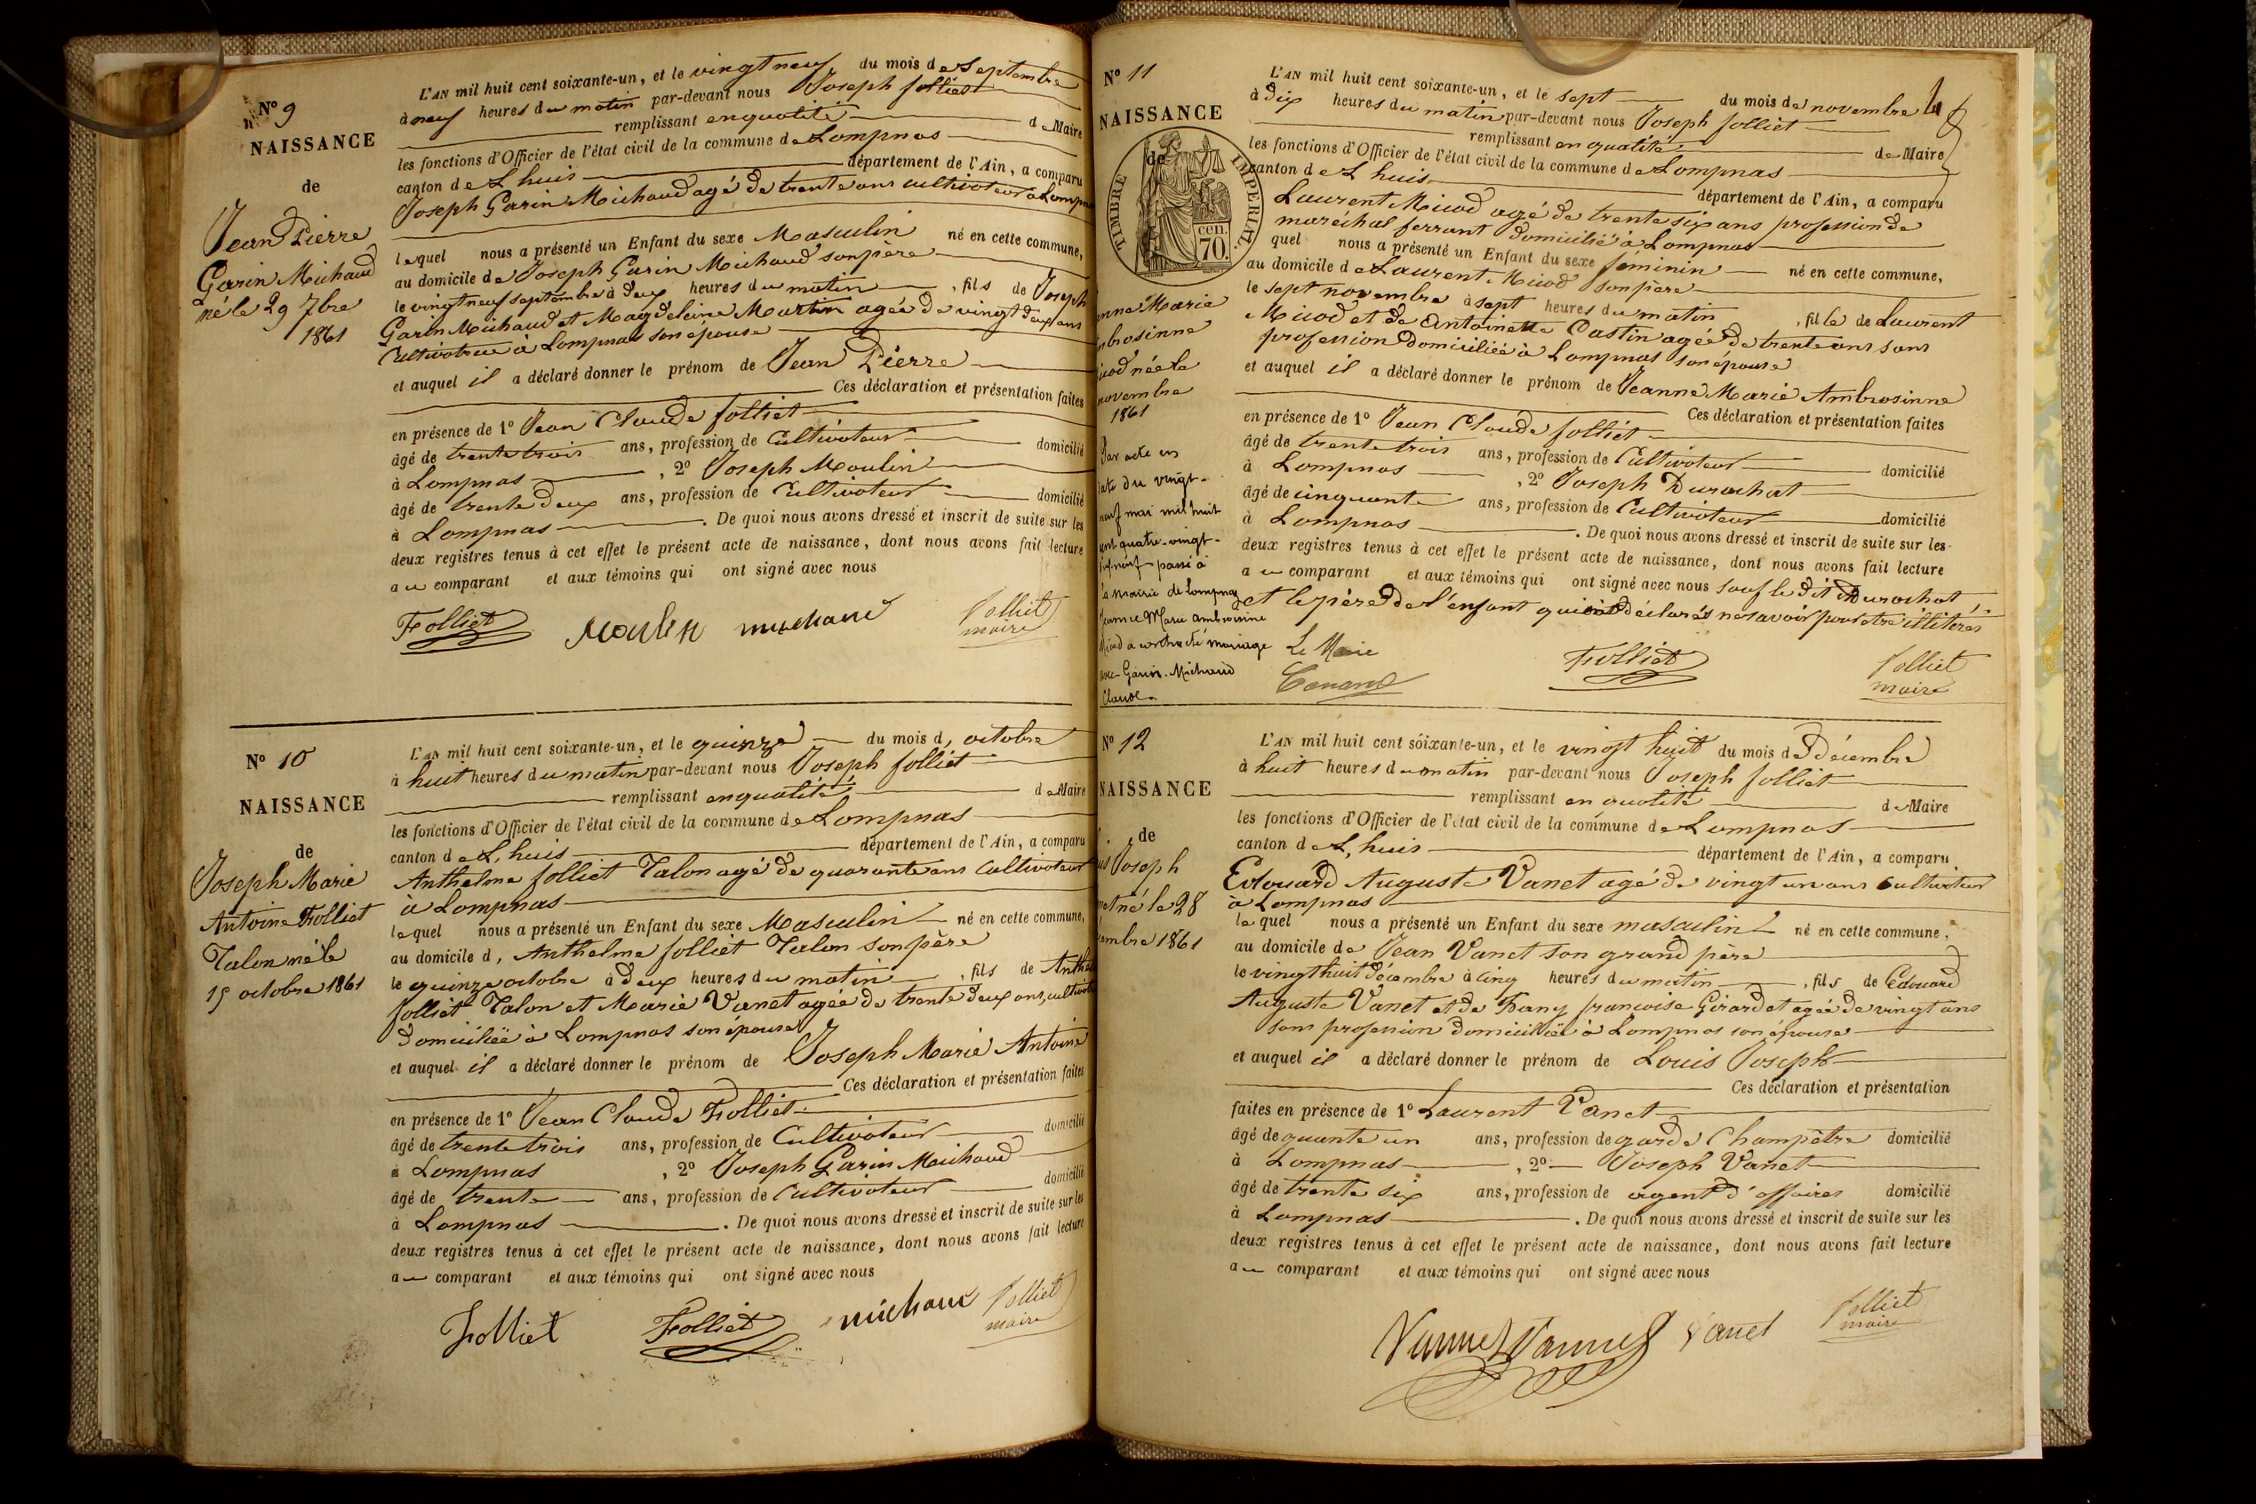 N° 9
NAISSANCE
de
Jean Pierre
Garin Michaud
né le 29 7bre
1861
L'AN mil huit cent soixante-un, et le vingt neuf du mois de Septembre
à neuf heures du matin par-devant nous Joseph folliet
remplissant en qualité de Maire
les fonctions d'Officier de l'état civil de la commune de Lompnas
canton de L huis département de l'Ain, a comparu
Joseph Garin Michaud agé de trente ans cultivateur à
lequel nous a présenté un Enfant du sexe Masculin né en cette commune,
au domicile de Joseph Garin Michaud son père
le vingt neuf septembre à deux heures du matin, fils de Joseph
Garin Michaud et Magdeleine Martin agée de vingt deux ans
Cultivatrice à Lompnas son épouse
et auquel il a déclaré donner le prénom de Jean Pierre
Ces déclaration et présentation faites
en présence de 1° Jean Claude folliet
âgé de trente trois ans, profession de Cultivateur domicilié
à Lompnas, 2° Joseph Moulin
âgé de trente deux ans, profession de Cultivateur domicilié
à Lompnas. De quoi nous avons dressé et inscrit de suite sur les
deux registres tenus à cet effet le présent acte de naissance, dont nous avons fait lecture
au comparant et aux témoins qui ont signé avec nous
Folliet Moulin michaud folliet
maire
N° 10
NAISSANCE
de
Joseph Marie
Antoine Folliet
Talon né le
15 octobre 1861
L'AN mil huit cent soixante-un, et le quinze du mois d, octobre
à huit heures du matin par-devant nous Joseph folliet
remplissant en qualité de Maire
les fonctions d'Officier de l'état civil de la commune de Lompnas
canton de L, huis département de l'Ain, a comparu
Anthelme folliet Talon agé de quarante ans Cultivateur
à Lompnas
lequel nous a présenté un Enfant du sexe Masculin né en cette commune,
au domicile d, Anthelme folliet Talon son père
le quinze octobre à deux heures du matin, fils de
folliet Talon et Marie Vanet agée de trente deux ans,
domiciliée à Lompnas son épouse
et auquel il a déclaré donner le prénom de Joseph Marie Antoine
Ces déclaration et présentation faites
en présence de 1° Jean Claude Folliet
âgé de trente trois ans, profession de Cultivateur domicilié
à Lompnas, 2° Joseph Garin Michaud
âgé de trente ans, profession de Cultivateur domicilié
à Lompnas. De quoi nous avons dressé et inscrit de suite sur les
deux registres tenus à cet effet le présent acte de naissance, dont nous avons fait lecture
au comparant et aux témoins qui ont signé avec nous
Folliet Folliet michaud folliet
maire
N° 11
NAISSANCE
de
TIMBRE IMPERIAL
70
cen.
Marie
née le
novembre
1861
Par acte en
date du vingt-
neuf mai mil huit
cent quatre-vingt-
passé à
la mairie de Lompnas
Jeanne Marie ambroisine
Micod a contracté mariage
avec Garin-Michaud
Claude.
L'AN mil huit cent soixante-un, et le sept du mois de novembre
à Dix heures du matin par-devant nous Joseph folliet
remplissant en qualité de Maire
les fonctions d'Officier de l'état civil de la commune de Lompnas
canton de L huis département de l'Ain, a comparu
Laurent Micod agé de trente six ans profession de
maréchal ferrant domicilié à Lompnas
quel nous a présenté un Enfant du sexe féminin né en cette commune,
au domicile de Laurent Micod son père
le sept novembre à sept heures du matin, fille de Laurent
Micod et de Antoinette Castin agée de trente ans sans
profession domiciliée à Lompnas son épouse
et auquel il a déclaré donner le prénom de Jeanne Marie Ambrosinne
Ces déclaration et présentation faites
en présence de 1° Jean Claude folliet
âgé de trente trois ans, profession de Cultivateur domicilié
à Lompnas, 2° Joseph Durochat
âgé de cinquante ans, profession de Cultivateur domicilié
à Lompnas. De quoi nous avons dressé et inscrit de suite sur les
deux registres tenus à cet effet le présent acte de naissance, dont nous avons fait lecture
au comparant et aux témoins qui ont signé avec nous sauf le dit Durochat,
et le père de l'enfant qui ont déclarés ne savoir pour être illitérés
Le Maire Folliet folliet
maire
N° 12
NAISSANCE
de
Joseph
né le 28
1861
L'AN mil huit cent soixante-un, et le vingt huit du mois de décembre
à huit heures du matin par-devant nous Joseph folliet
remplissant en qualité de Maire
les fonctions d'Officier de l'état civil de la commune de Lompnas
canton de L, huis département de l'Ain, a comparu
Edouard Auguste Vanet agé de vingt un ans Cultivateur
à Lompnas
lequel nous a présenté un Enfant du sexe masculin né en cette commune,
au domicile de Jean Vanet son grand père
le vingt huit décembre à cinq heures du matin, fils de Edouard
Auguste Vanet et de Fany francoise Girardet agée de vingt ans
sans profession domiciliée à Lompnas son épouse
et auquel il a déclaré donner le prénom de Louis Joseph
Ces déclaration et présentation
faites en présence de 1° Laurent Vanet
âgé de quante un ans, profession de garde Champêtre domicilié
à Lompnas, 2° Joseph Vanet
âgé de trente six ans, profession de agent d'affaires domicilié
à Lompnas. De quoi nous avons dressé et inscrit de suite sur les
deux registres tenus à cet effet le présent acte de naissance, dont nous avons fait lecture
au comparant et aux témoins qui ont signé avec nous
Vannet Vannet Vanet folliet
maire